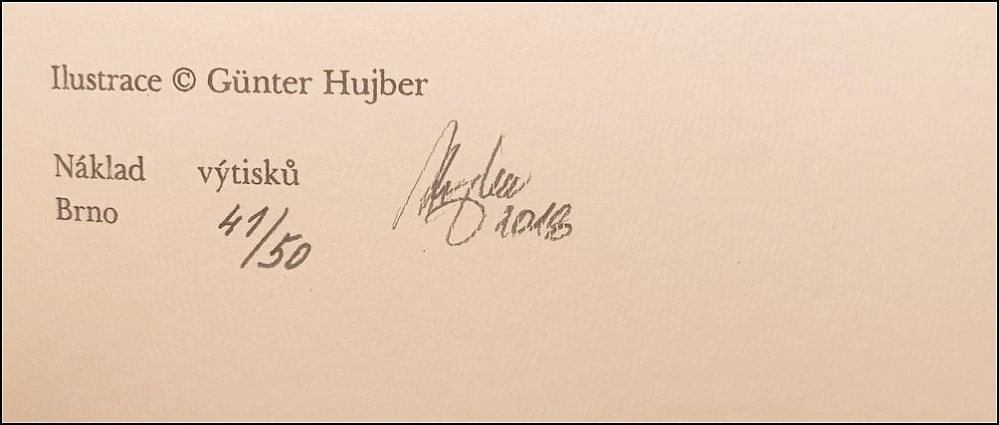 Ilustrace © Günter Hujber
Náklad výtisků
Brno 41/50
Hujber 2018